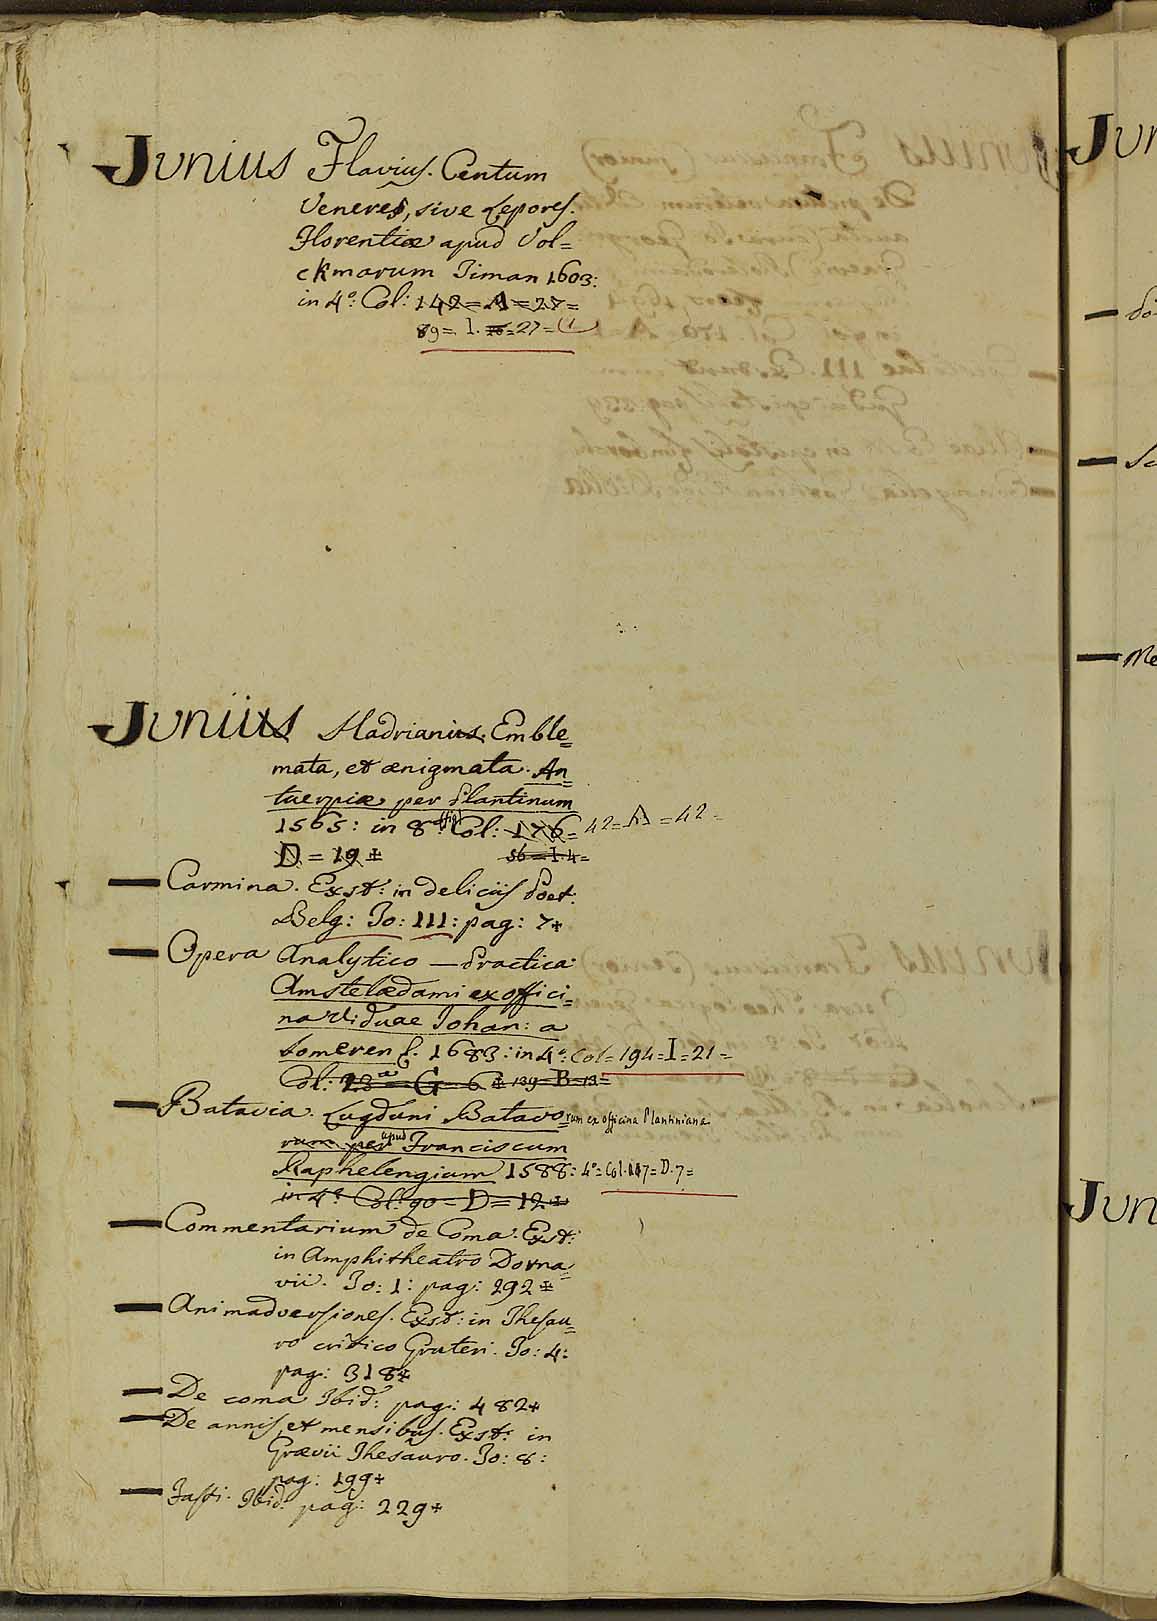 Junius Flavius. Centum
Veneres, sive Lepores.
Florentiæ apud Vol=
ckmarum Timan 1603:
in 4º: Col: 142= A = 27=
89= I. = 27=
Junius Hadrianus. Emble=
mata, et ænigmata. An
tuerpiæ per Plantinum
1565: in 8º: Col: 176= 42= A = 42=
D = 19 + 56 = I. 4=
Carmina. Exst: in deliciis Poet:
Belg: To: III: pag: 7+
Opera Analytico — Practica
Amstelædami ex offici=
na Viduae Johan: a
Someren f. 1683: in 4º: Col= 194= I = 21=
Col: 23= G= 6 + 139= B= 13=
Batavia. Lugduni Batavorum ex officina Plantiniana
rum per apud Franciscum
Raphelengium 1588: 4º= Col. 117= D. 7=
in 4º Col: 90= D= 12 +
Commentarium de Coma: Exst:
in Amphitheatro Dorna=
vii. To: 1: pag: 292+
Animadversiones. Exst: in Thesau=
ro critico Gruteri. To: 4:
pag: 318+
De coma Ibid: pag: 482+
De annis, et mensibus. Exst: in
Grævii Thesauro. To: 8:
pag: 199+
Fasti. Ibid: pag: 229+
Jun
So
Me
Jun